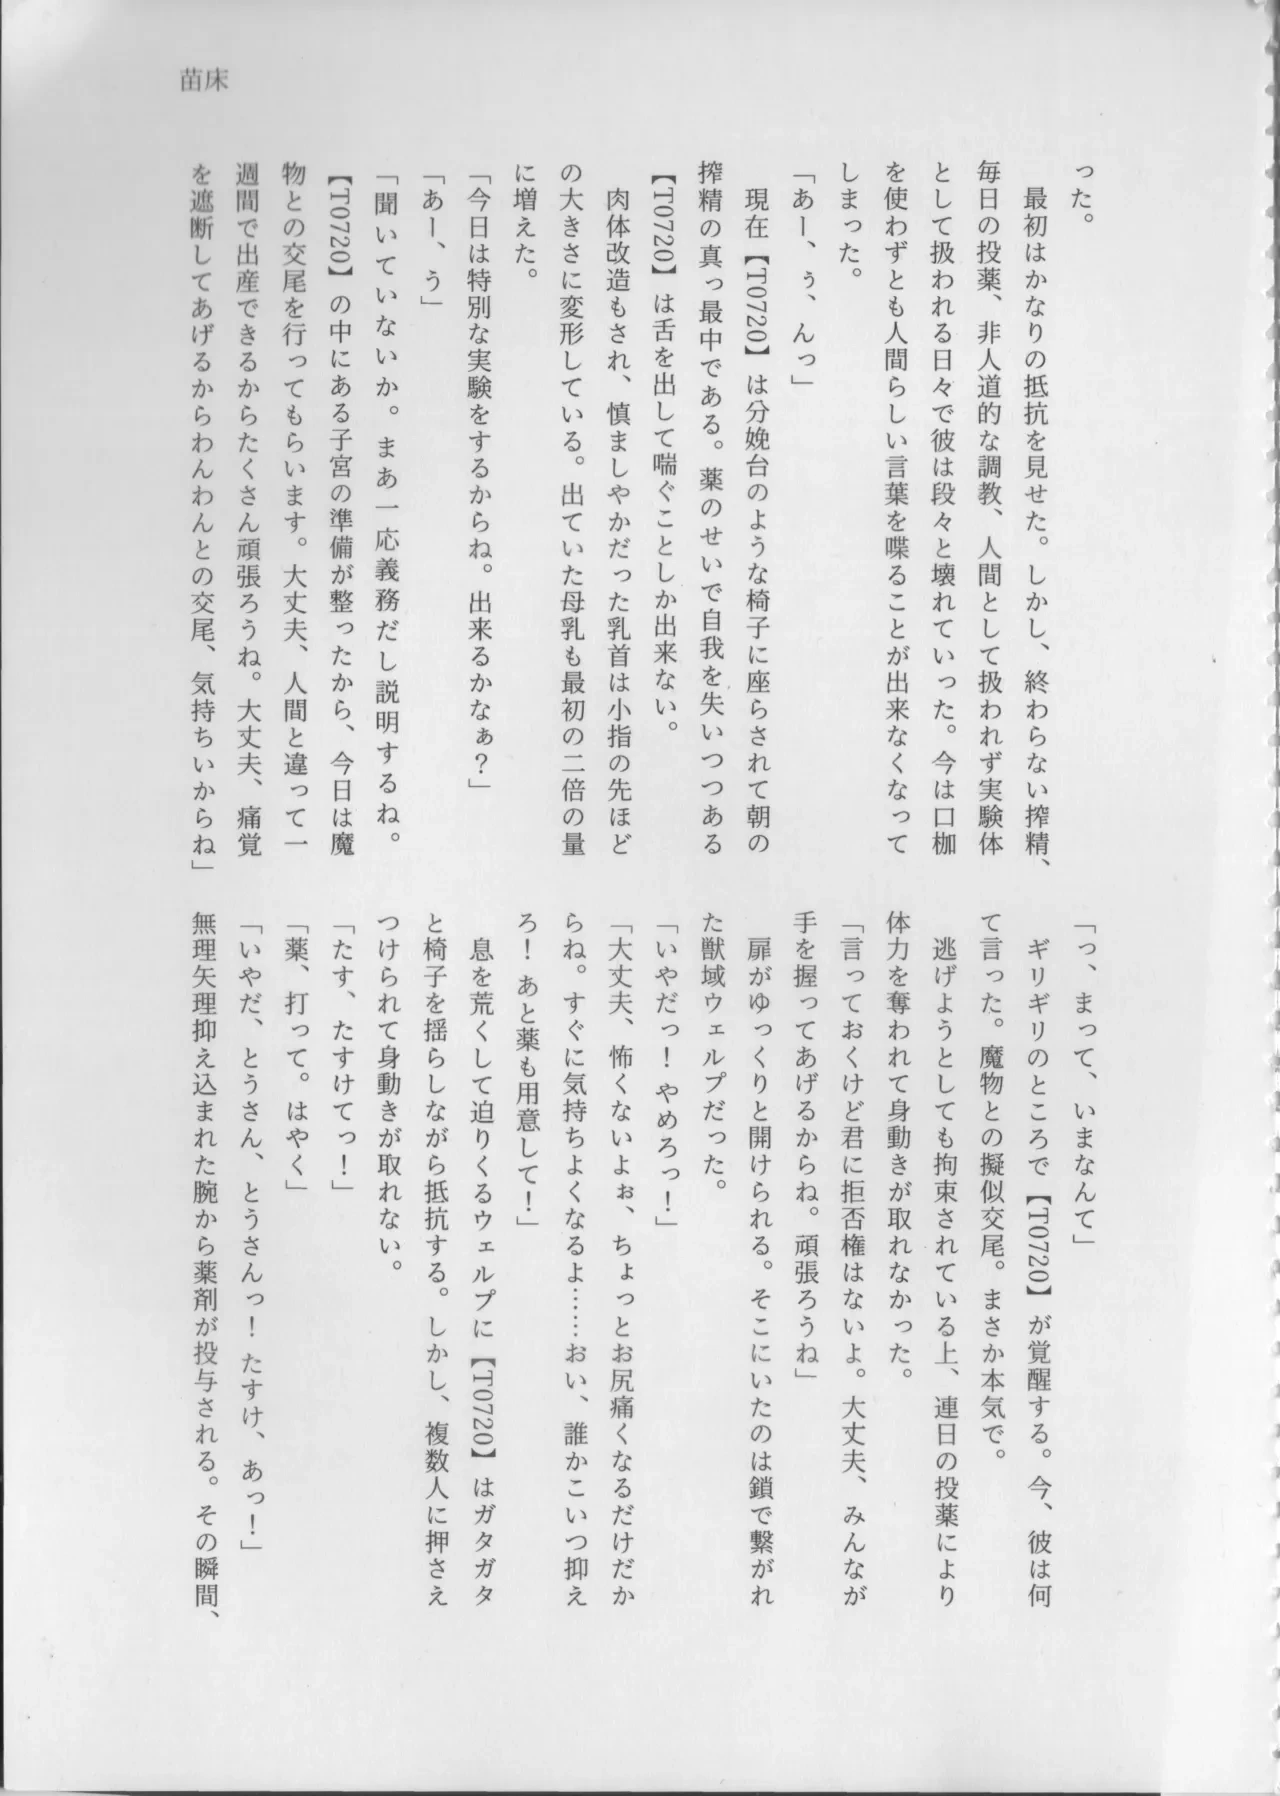 苗床
った。
　最初はかなりの抵抗を見せた。しかし、終わらない搾精、
毎日の投薬、非人道的な調教、人間として扱われず実験体
として扱われる日々で彼は段々と壊れていった。今は口枷
を使わずとも人間らしい言葉を喋ることが出来なくなって
しまった。
「あー、ぅ、んっ」
　現在【T0720】は分娩台のような椅子に座らされて朝の
搾精の真っ最中である。薬のせいで自我を失いつつある
【T0720】は舌を出して喘ぐことしか出来ない。
　肉体改造もされ、慎ましやかだった乳首は小指の先ほど
の大きさに変形している。出ていた母乳も最初の二倍の量
に増えた。
「今日は特別な実験をするからね。出来るかなぁ？」
「あー、う」
「聞いていないか。まあ一応義務だし説明するね。
【T0720】の中にある子宮の準備が整ったから、今日は魔
物との交尾を行ってもらいます。大丈夫、人間と違って一
週間で出産できるからたくさん頑張ろうね。大丈夫、痛覚
を遮断してあげるからわんわんとの交尾、気持ちいからね」
「っ、まって、いまなんて」
　ギリギリのところで【T0720】が覚醒する。今、彼は何
て言った。魔物との擬似交尾。まさか本気で。
　逃げようとしても拘束されている上、連日の投薬により
体力を奪われて身動きが取れなかった。
「言っておくけど君に拒否権はないよ。大丈夫、みんなが
手を握ってあげるからね。頑張ろうね」
　扉がゆっくりと開けられる。そこにいたのは鎖で繋がれ
た獣域ウェルプだった。
「いやだっ！やめろっ！」
「大丈夫、怖くないよぉ、ちょっとお尻痛くなるだけだか
らね。すぐに気持ちよくなるよ……おい、誰かこいつ抑え
ろ！あと薬も用意して！」
　息を荒くして迫りくるウェルプに【T0720】はガタガタ
と椅子を揺らしながら抵抗する。しかし、複数人に押さえ
つけられて身動きが取れない。
「たす、たすけてっ！」
「薬、打って。はやく」
「いやだ、とうさん、とうさんっ！たすけ、あっ！」
無理矢理抑え込まれた腕から薬剤が投与される。その瞬間、